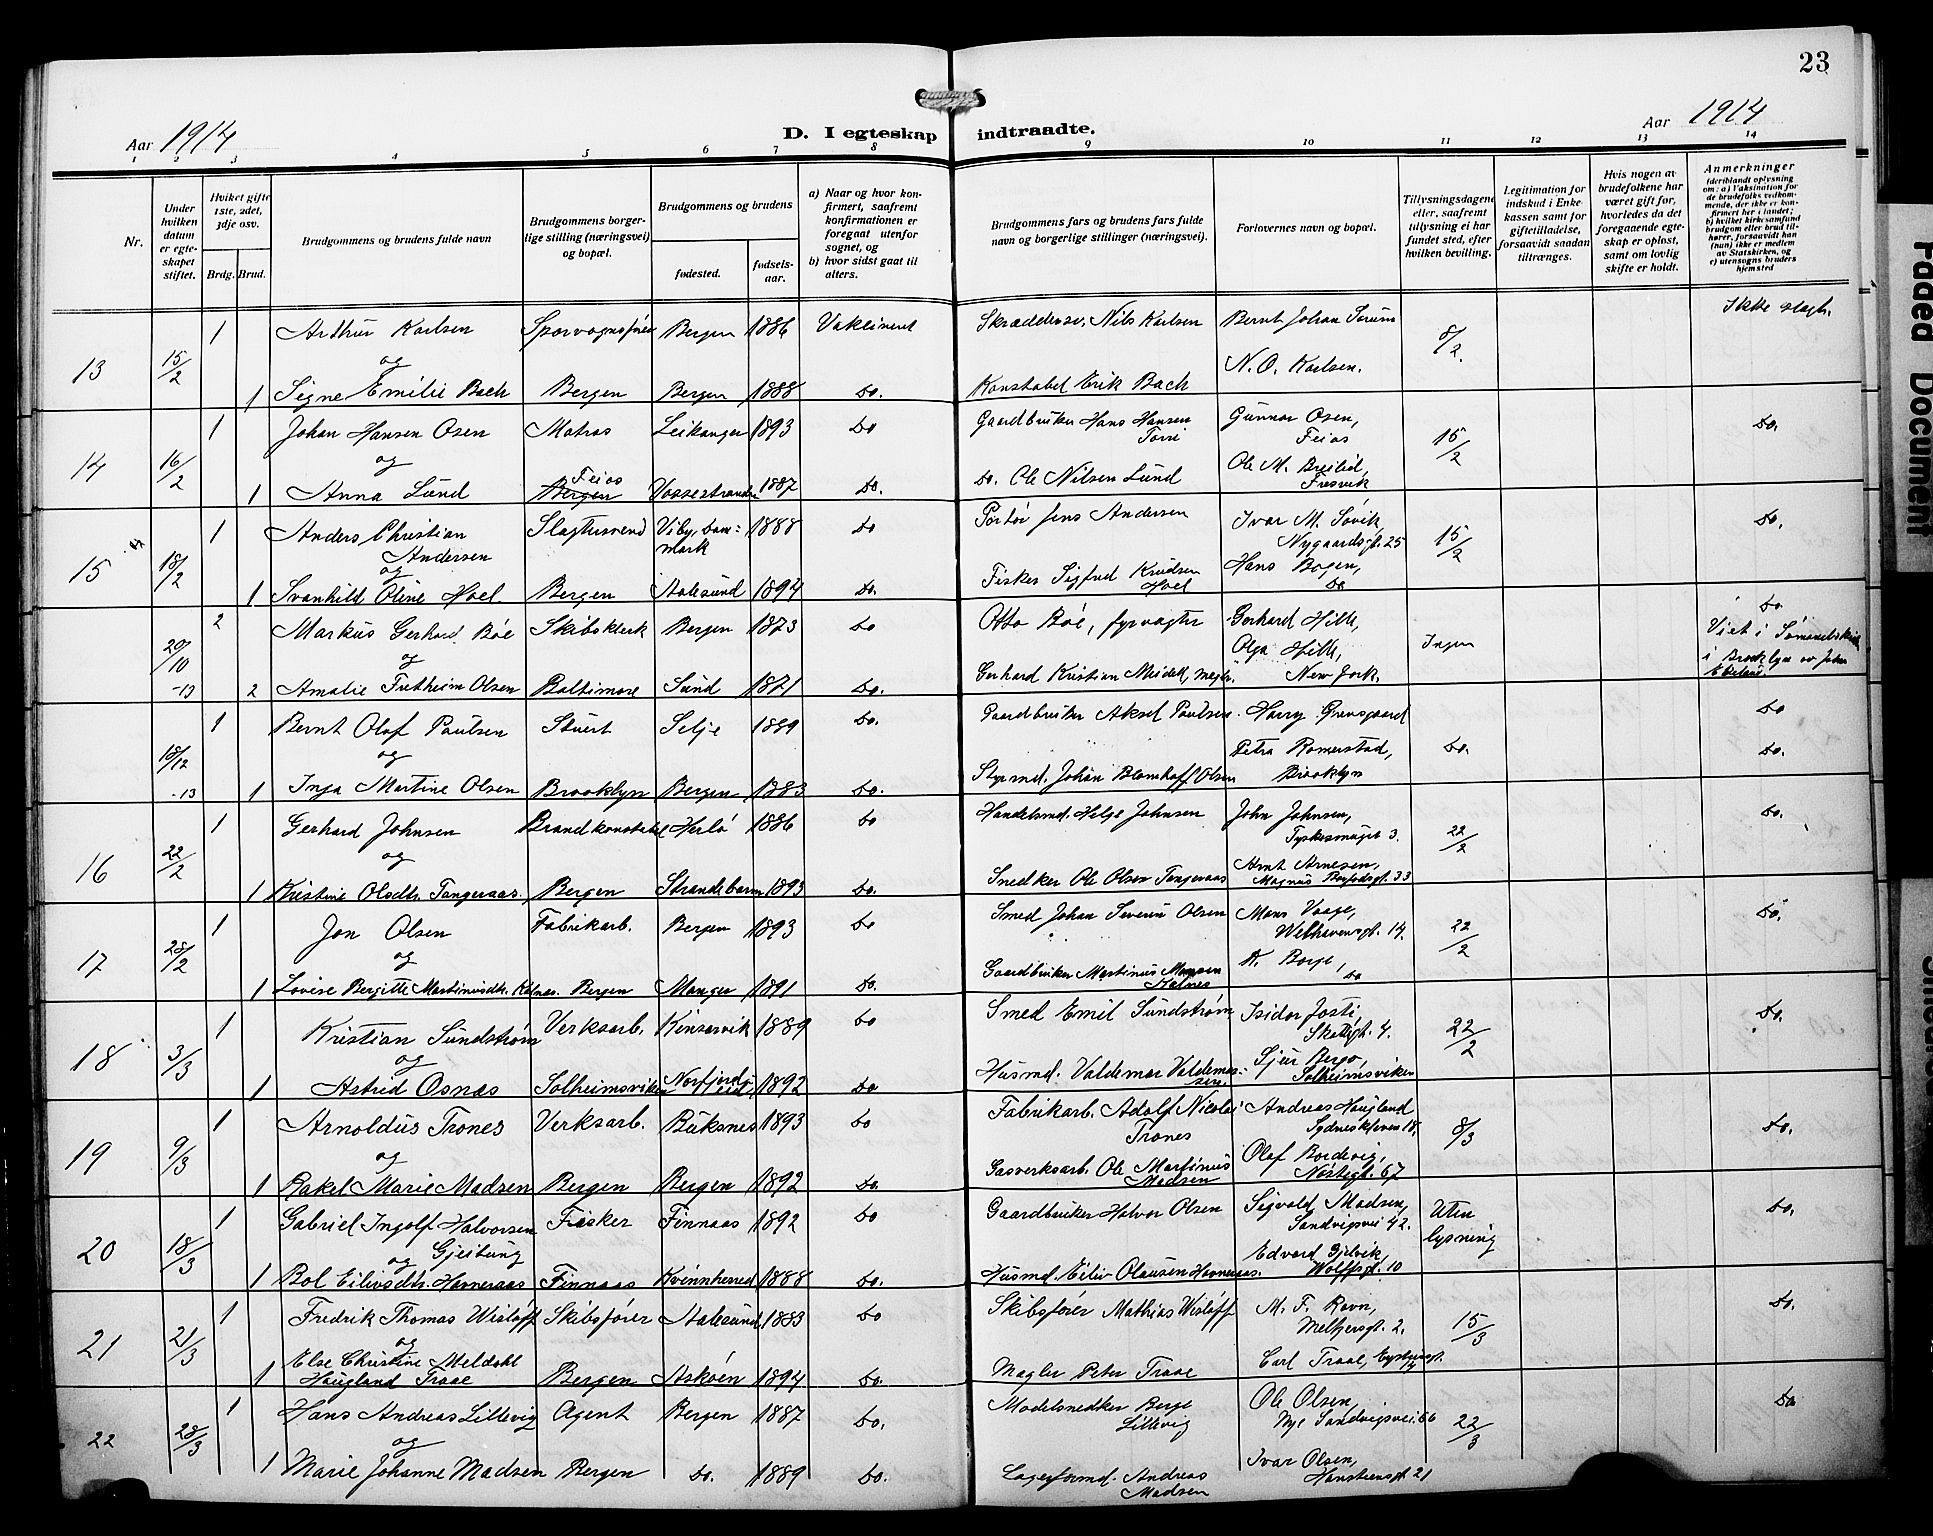 23
Aar 1914
D. I egteskap indtraadte.
Aar 1914
1 2 3 4 5 6 7 8 9 10 11 12 13 14
Nr.
Under hvilken datum er egteskapet stiftet.
Hvilket gifte 1ste, 2det, 3dje osv.
Brdg. Brud.
Brudgommens og brudens fulde navn
Brudgommens borgerlige stilling (næringsvei) og bopæl.
Brudgommens og brudens
fødested.
fødselsaar.
a) Naar og hvor konfirmert, saafremt konfirmationen er foregaat utenfor sognet, og
b) hvor sidst gaat til alters.
Brudgommens fars og brudens fars fulde navn og borgerlige stillinger (næringsvei).
Forlovernes navn og bopæl.
Tillysningsdagene eller, saafremt tillysning ei har fundet sted, efter hvilken bevilling.
Legitimation for indskud i Enkekassen samt for giftetilladelse, forsaavidt saadan tiltrænges.
Hvis nogen av brudefolkene har været gift før, hvorledes da det foregaaende egteskap er opløst, samt om lovlig skifte er holdt.
Anmerkninger (deriblandt oplysning om: a) Vaksination for de brudefolks vedkommende, der ikke er konfirmert her i landet; b) hvilket kirkesamfund brudgom eller brud tilhører, forsaavidt han (hun) ikke er medlem av Statskirken, og c) utensogns bruders hjemsted
13 15/2 1 Arthur Karlsen Bergen 1886 Vaksinert Nils Karlsen Bernt Johan Sørum 8/2. Ikke slegt.
og N. O. Karlsen.
1 Signe Emilie Bach Bergen Bergen 1888 do. Konstabel Erik Bach
14 16/2 1 Johan Hansen Osen Matros Leikanger 1893 do Gaardbruker Hans Hansen Gunnar Osen, Feios 15/2 do.
og Feios
1 Anna Lund Bergen Vossestranden 1887 do. do. Ole Nilsen Lund Ole M. Fresvik
15 18/2 1 Anders Christian Andersen Slagtersvend Viby, Danmark 1888 do Jens Andersen Ivar M. Søvik, Nygaardsgt. 25 15/2 do.
og
1 Svanhild Oline Hoel Bergen Aalesund 1894 do. Fisker Sigfred Knudsen Hoel Hans Bogen, do
20/10 -13 2 Markus Gerhard Bøe Skibsklerk Bergen 1873 do Otto Bøe, fyrvagter Gerhard Hille, Olga Hille, New York. Ingen do Viet i Sømandskirken i Brooklyn av
og
2 Amalie Fretheim Olsen Baltimore Sund 1871 do. Gerhard Kristian
18/12 -13 1 Bernt Olaf Paulsen Stuert Selje 1889 do. Gaardbruker Aksel Paulsen Harry do. do
og Petra Romerstad, Brooklyn do.
1 Inga Martine Olsen Brooklyn Bergen 1883 do. Styrmd. Johan Blomhoff Olsen
16 22/2 1 Gerhard Johnsen Brandkonstabel Herlø 1886 do Handelsmd. Helge Johnsen John Johnsen, Tyskesmuget 3. 22/2 do.
og
1 Kristine Olsdtr. Tangeraas. Bergen Strandebarm 1893 do Snedker Ole Olsen Tangeraas Arnt Arnesen, Magnus Barfodsgt. 33
17 28/2 1 Jon Olsen Fabrikarb. Bergen 1893 do Smed Johan Severin Olsen Mons Vaage, Welhavensgt. 14. 22/2 do.
og
1 Lovise Bergitte Martinusdtr. Kalnes. Bergen Manger 1891 do. Gaardbruker Martinus Monsen Kalnes K. Borge, do
18 3/3 1 Kristian Sundstrøm Verksarb. Kinservik 1889 do Smed Emil Sundstrøm Isidor Josti, 22/2 do.
og
1 Astrid Osnas Solheimsviken Norfjordeid 1892 do Husmd. Valdemar Valdemarsen. Sjur Bergo, Solheimsviken
19 9/3 1 Arnoldus Trones Verksarb. Buksnes 1893 do Fabrikarb. Adolf Nicolai Trones Andreas Haugland Sydneskleven 18. 8/3 do.
og
1 Rakel Marie Madsen Bergen Bergen 1892 do. Gasverksarb. Ole Martinus Madsen Olaf Bordevig, Nøstegt. 67
20 18/3 1 Gabriel Ingolf Halvorsen Gjeitung Fisker Finnaas 1892 do Gaardbruker Halvor Olsen Sigvald Madsen, Sandvigsvei 42. Uten lysning do.
og
1 Bol Eilivsdtr. Havneraas Finnaas Kvinnherred 1888 do. Husmd. Eiliv Olausen Havneraas. Edvard Gjelvik, Wolffsgt. 10
21 21/3 1 Fredrik Thomas Wisløff Skibsfører Aalesund 1883 do Skibsfører Mathias Wisløff M. F. Ravn, Meltzersgt. 2. 15/3 do.
og
1 Else Christine Meldahl Haugland Traae Bergen Askøen 1894 do. Mægler Peter Traae Carl Traae,
22 28/3 1 Hans Andreas Lillevig Agent Bergen 1887 do. Modelsnedker Berge Lillevig Ole Olsen, Nye Sandvigsvei 66 22/3 do
og
1 Marie Johanne Madsen Bergen do. 1889 do. Lagerformd. Andreas Madsen Ivar Olsen, Hansteensgt 21
Faded Document